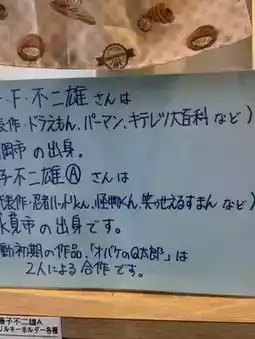 ・F・不二雄 さんは
表作・ドラえもん、パーマン、キテレツ大百科 など)
岡市 の出身。
子不二雄Ⓐ さんは
代表作・忍者ハットリくん、怪物くん、笑ゥせぇるすまん など)
氷見市 の出身です。
動初期の作品、「オバケのQ太郎」は
2人による合作です。
藤子不二雄A
リルキーホルダー各種